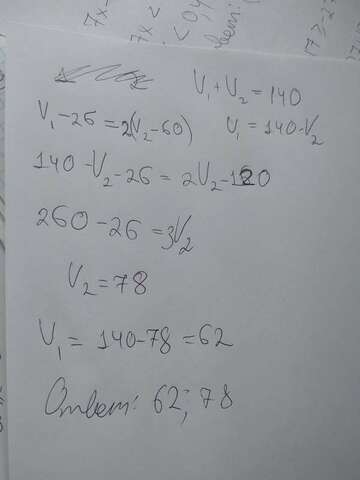 7x-
7x <
< 0,4
17 ≥ 2
V₁ + V₂ = 140
V₁ - 26 = 2(V₂ - 60) V₁ = 140 - V₂
140 - V₂ - 26 = 2V₂ - 120
260 - 26 = 3V₂
V₂ = 78
V₁ = 140 - 78 = 62
Ответ: 62; 78